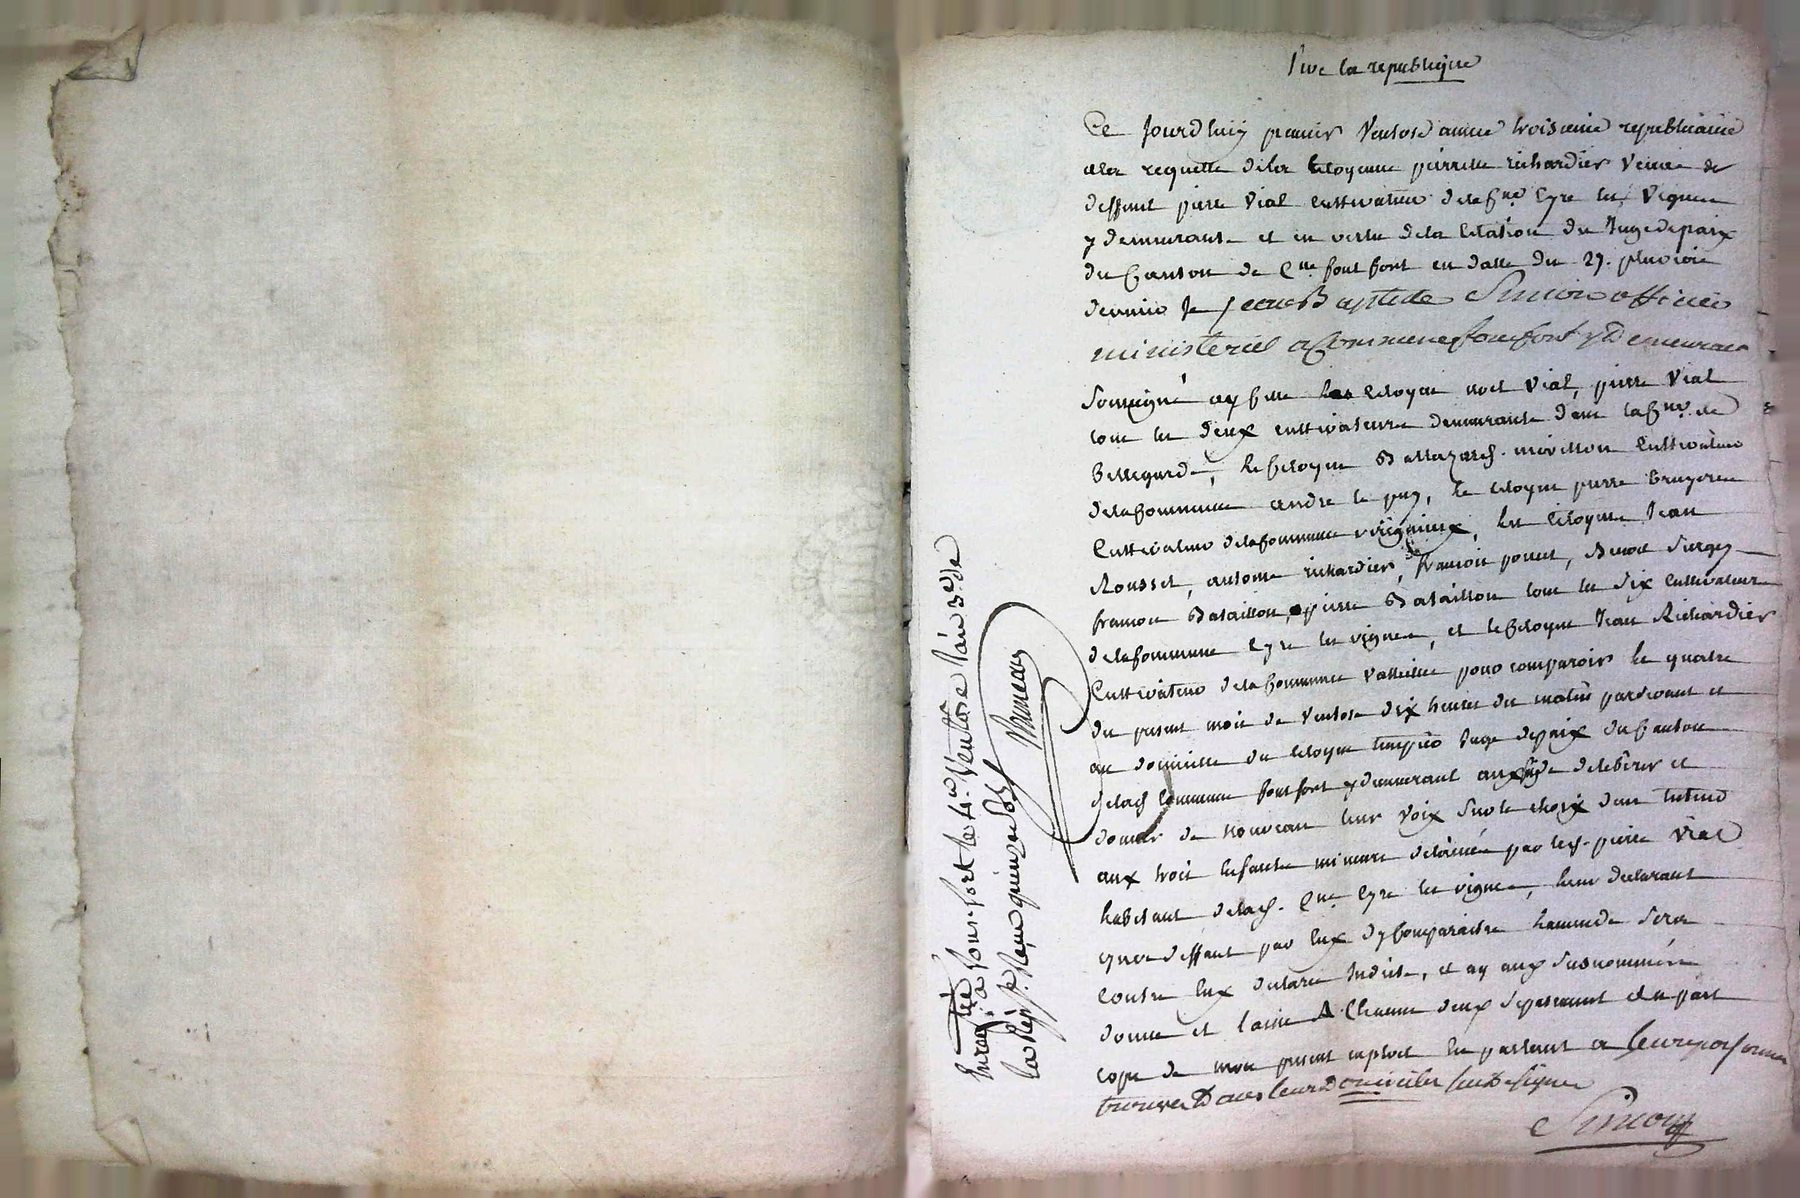 Vive la republique
Ce jourdhuy premier Ventose année troisième républicaine
ala requette dela Citoyenne pierrette richardier Veuve de
deffunt pierre Vial Cultivateur dela Cne Cyre les Vignes
y demeurante et en vertu dela Citation du Juge de paix
du Canton de Cne font fort en datte du 29. pluviose
dernier Je Jean Baptiste Simion officier
ministeriel a Commune fontfort y demeurant
Soussigné ay Citte les Citoyens noel Vial, pierre Vial
tous les deux cultivateurs demeurants dans la Cne de
Bellegarde, le Citoyen Baltazard mivillon Cultivateur
dela Commune andré le puy, le Citoyen pierre bruyeres
Cultivateur dela Commune virigneux, les Citoyens Jean
Rousset, antoine richardier, francois poncet, Benoit Surgey
francois Bataillon, pierre Bataillon tous les six Cultivateurs
dela Commune Cyre les vignes, et le Citoyen Jean Richardier
Cultivateur dela Commune Valleille pour comparoir le quatre
du present mois de Ventose dix heures du matin pardevant et
au domicille du Citoyen Juge de paix du Canton
delad Commune fontfort y demeurant aux fins de deliberer et
donner de nouveau leur voix sur le choix d'un tuteur
aux trois Enfants mineurs delaissés par led. pierre Vial
habitant delad. Cne Cyre les vignes, leur declarant
que a deffaut par Eux dy Comparaitre lamende Sera
Contre Eux declarée Induite, et ay aux Susnommés
donné et laissé A Chacun deux separement et a part
copie de mon present exploit En parlant a leur personne
trouvée dans leur domiciles Susdesigné
Simion
Enregitré à Fontfort le 4me Ventôse l'an 3e. de
la Rép. f. Reçu quinze sols